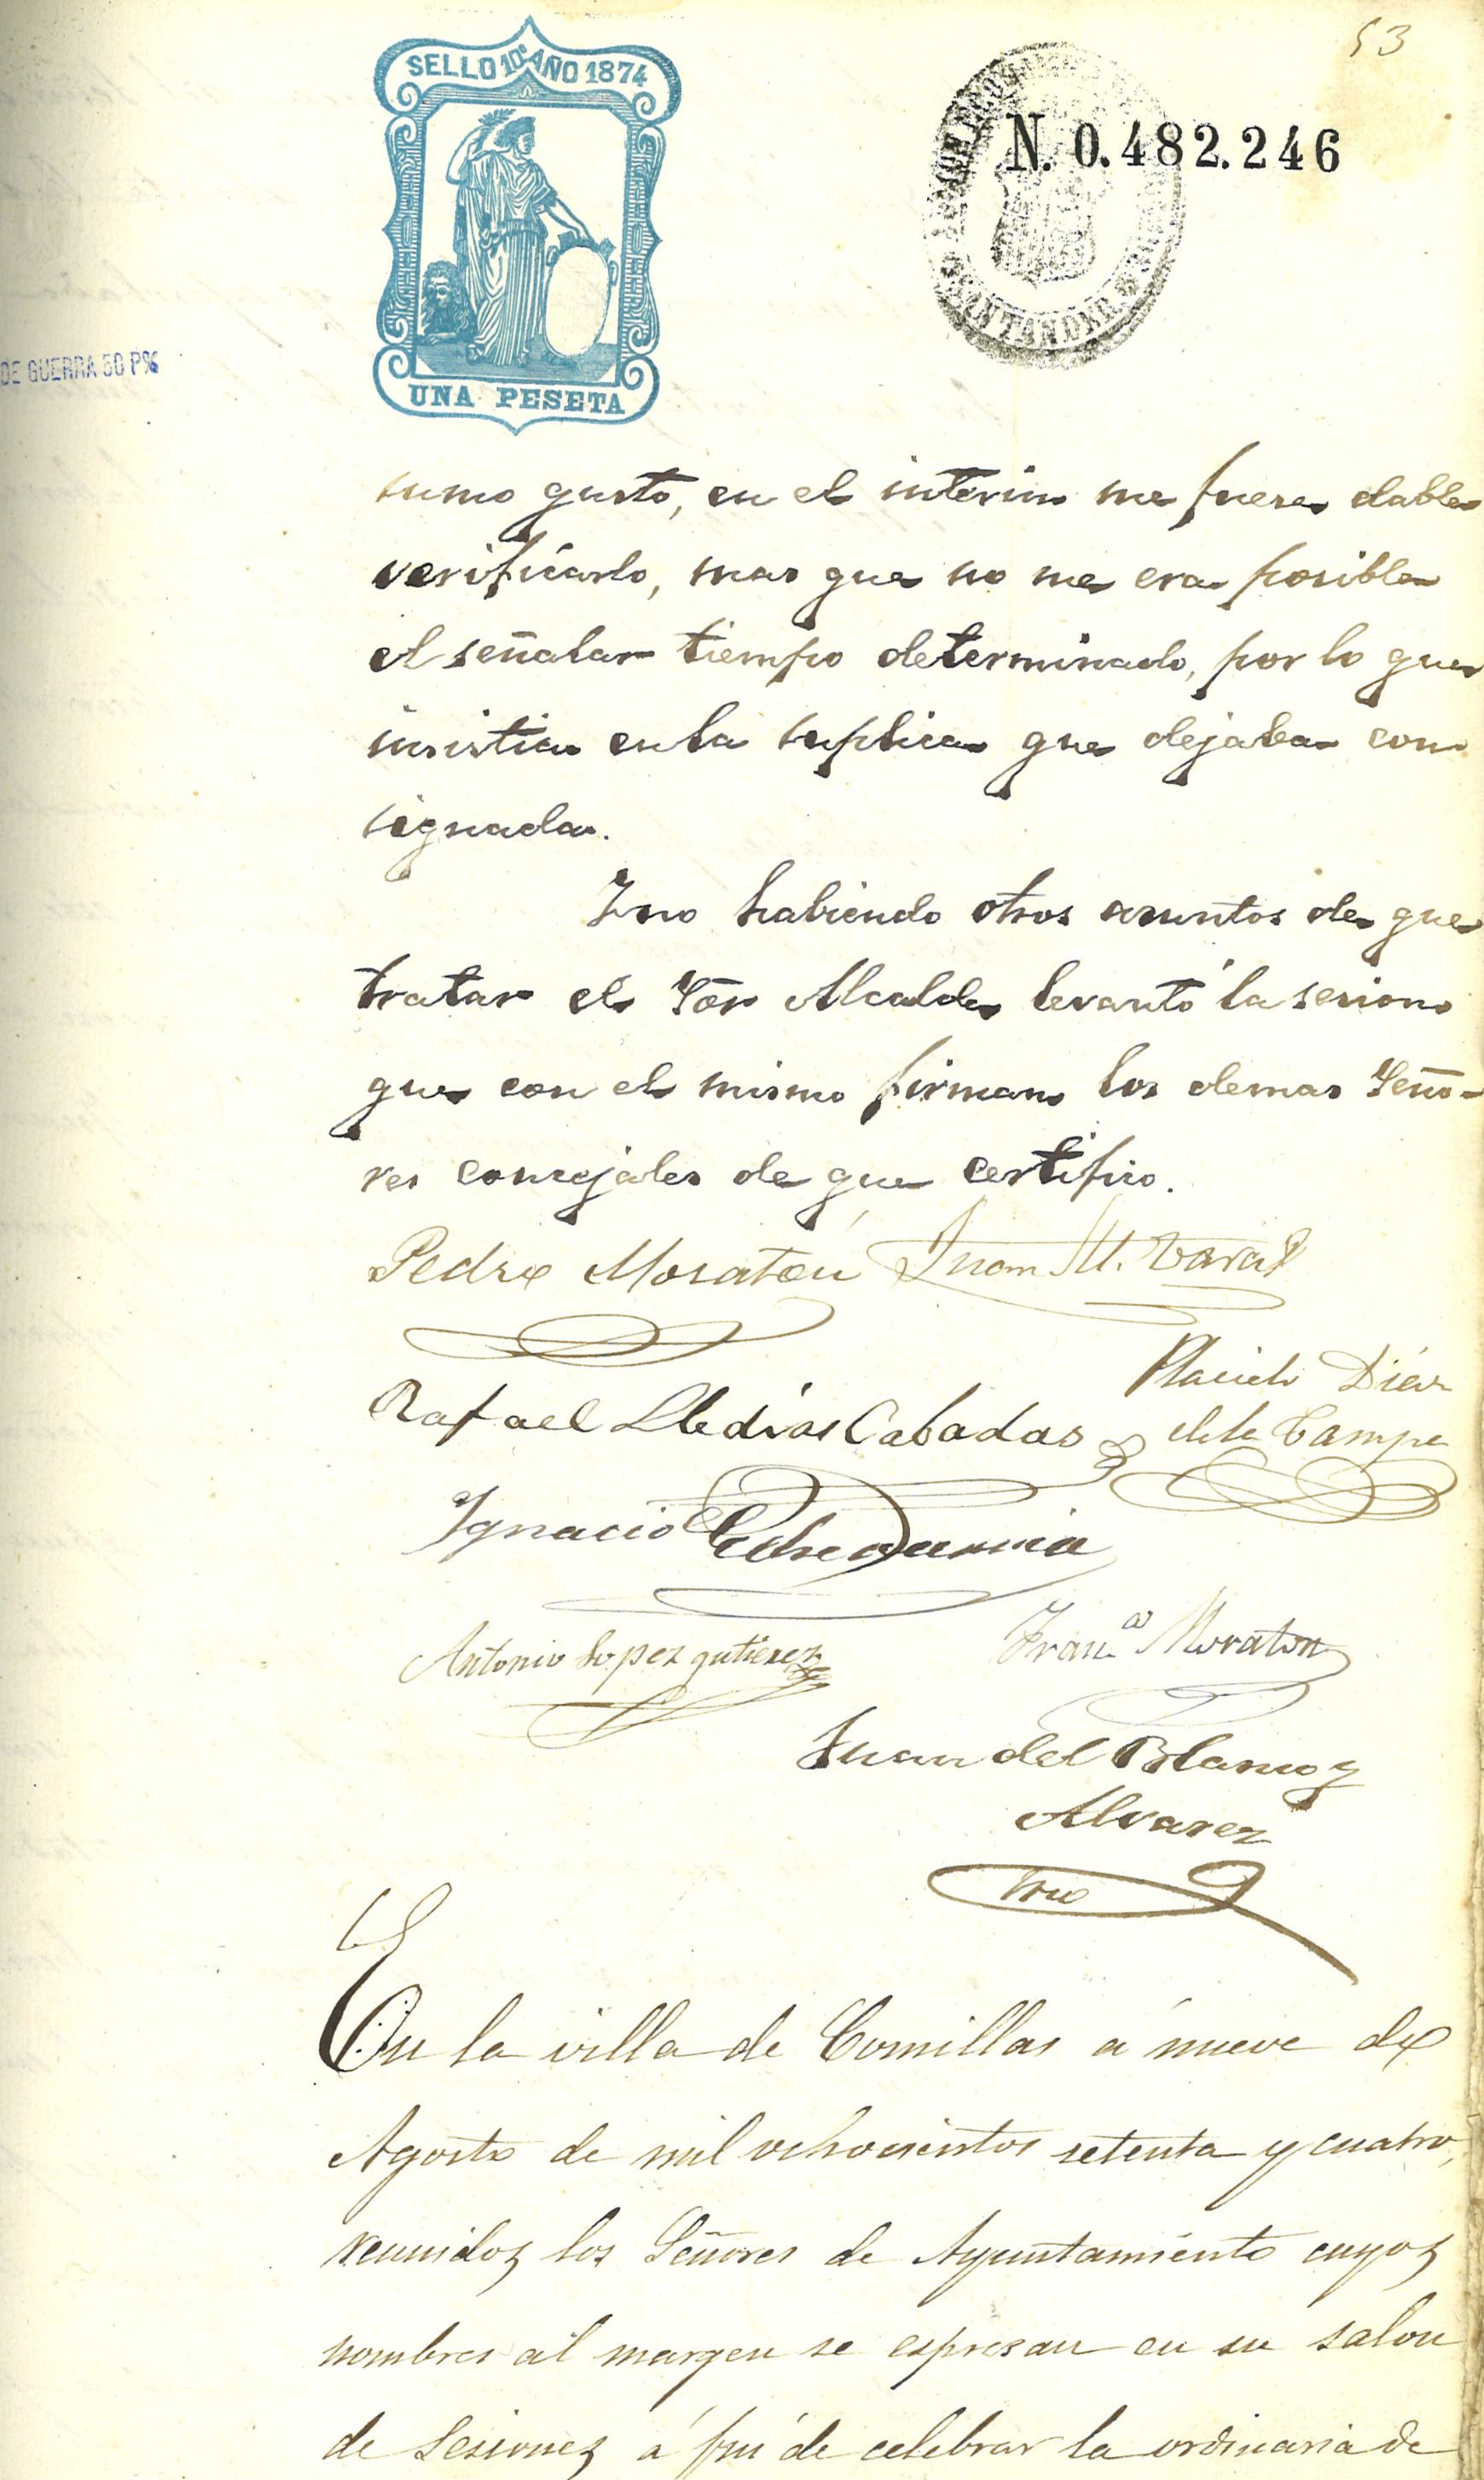 53
SELLO 10º AÑO 1874
N. 0.482.246
SANTANDER
DE GUERRA 50 P%
UNA PESETA
sumo gusto, en el interin me fuera dable
verificarlo, mas que no me era posible
el señalar tiempo determinado, por lo que
insistia en la suplica que dejaba con
signada.
Y no habiendo otros asuntos de que
tratar el Sõr Alcalde levantó la sesion
que con el mismo firman los demas Seño-
res concejales de que certifico.
Pedro Moratón Juan M. Varal
Placido Díaz
Rafael Lledías Cabadas de la Campa
Ignacio Echevarria
Antonio Lopez gutierez Fran.co Moraton
Juan del Blanco y
Alvarez
Srio
En la villa de Comillas á nueve de
Agosto de mil ochocientos setenta y cuatro,
reunidos los Señores de Ayuntamiento cuyos
nombres al margen se espresan en su salon
de Sesiones á fin de celebrar la ordinaria de